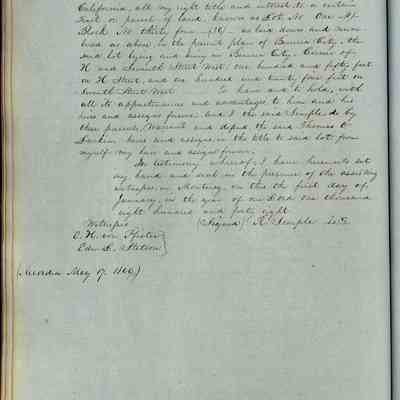 California, all my right title and interest to a certain
tract or parcel of land, known as Lot No One (1)
Block No thirty four (34) as laid down and num-
bered as above, in the present plan of Benicia City, the
said lot lying and being in Benicia City, Corner of
H and Seventh Street West, one hundred and fifty feet
on H Street, and one hundred and twenty five feet on
Seventh Street West To have and to hold, with
all its appurtenances and advantages to him and his
heirs and assigns forever. And I the said Semple do by
these presents, Warrant and defend the said Thomas O
Larkin, heirs and assigns, in the title to said lot, from
myself my heirs and assigns forever.
In testimony whereof, I have hereunto set
my hand and seal in the presence of the assisting
witnesses, in Monterey, on this the first day of
January, in the year of our Lord one thousand
eight hundred and forty eight
Witness (Signed) R. Semple
E. H. von Pfister
Edw. L. Stetson
May 17. 1860)